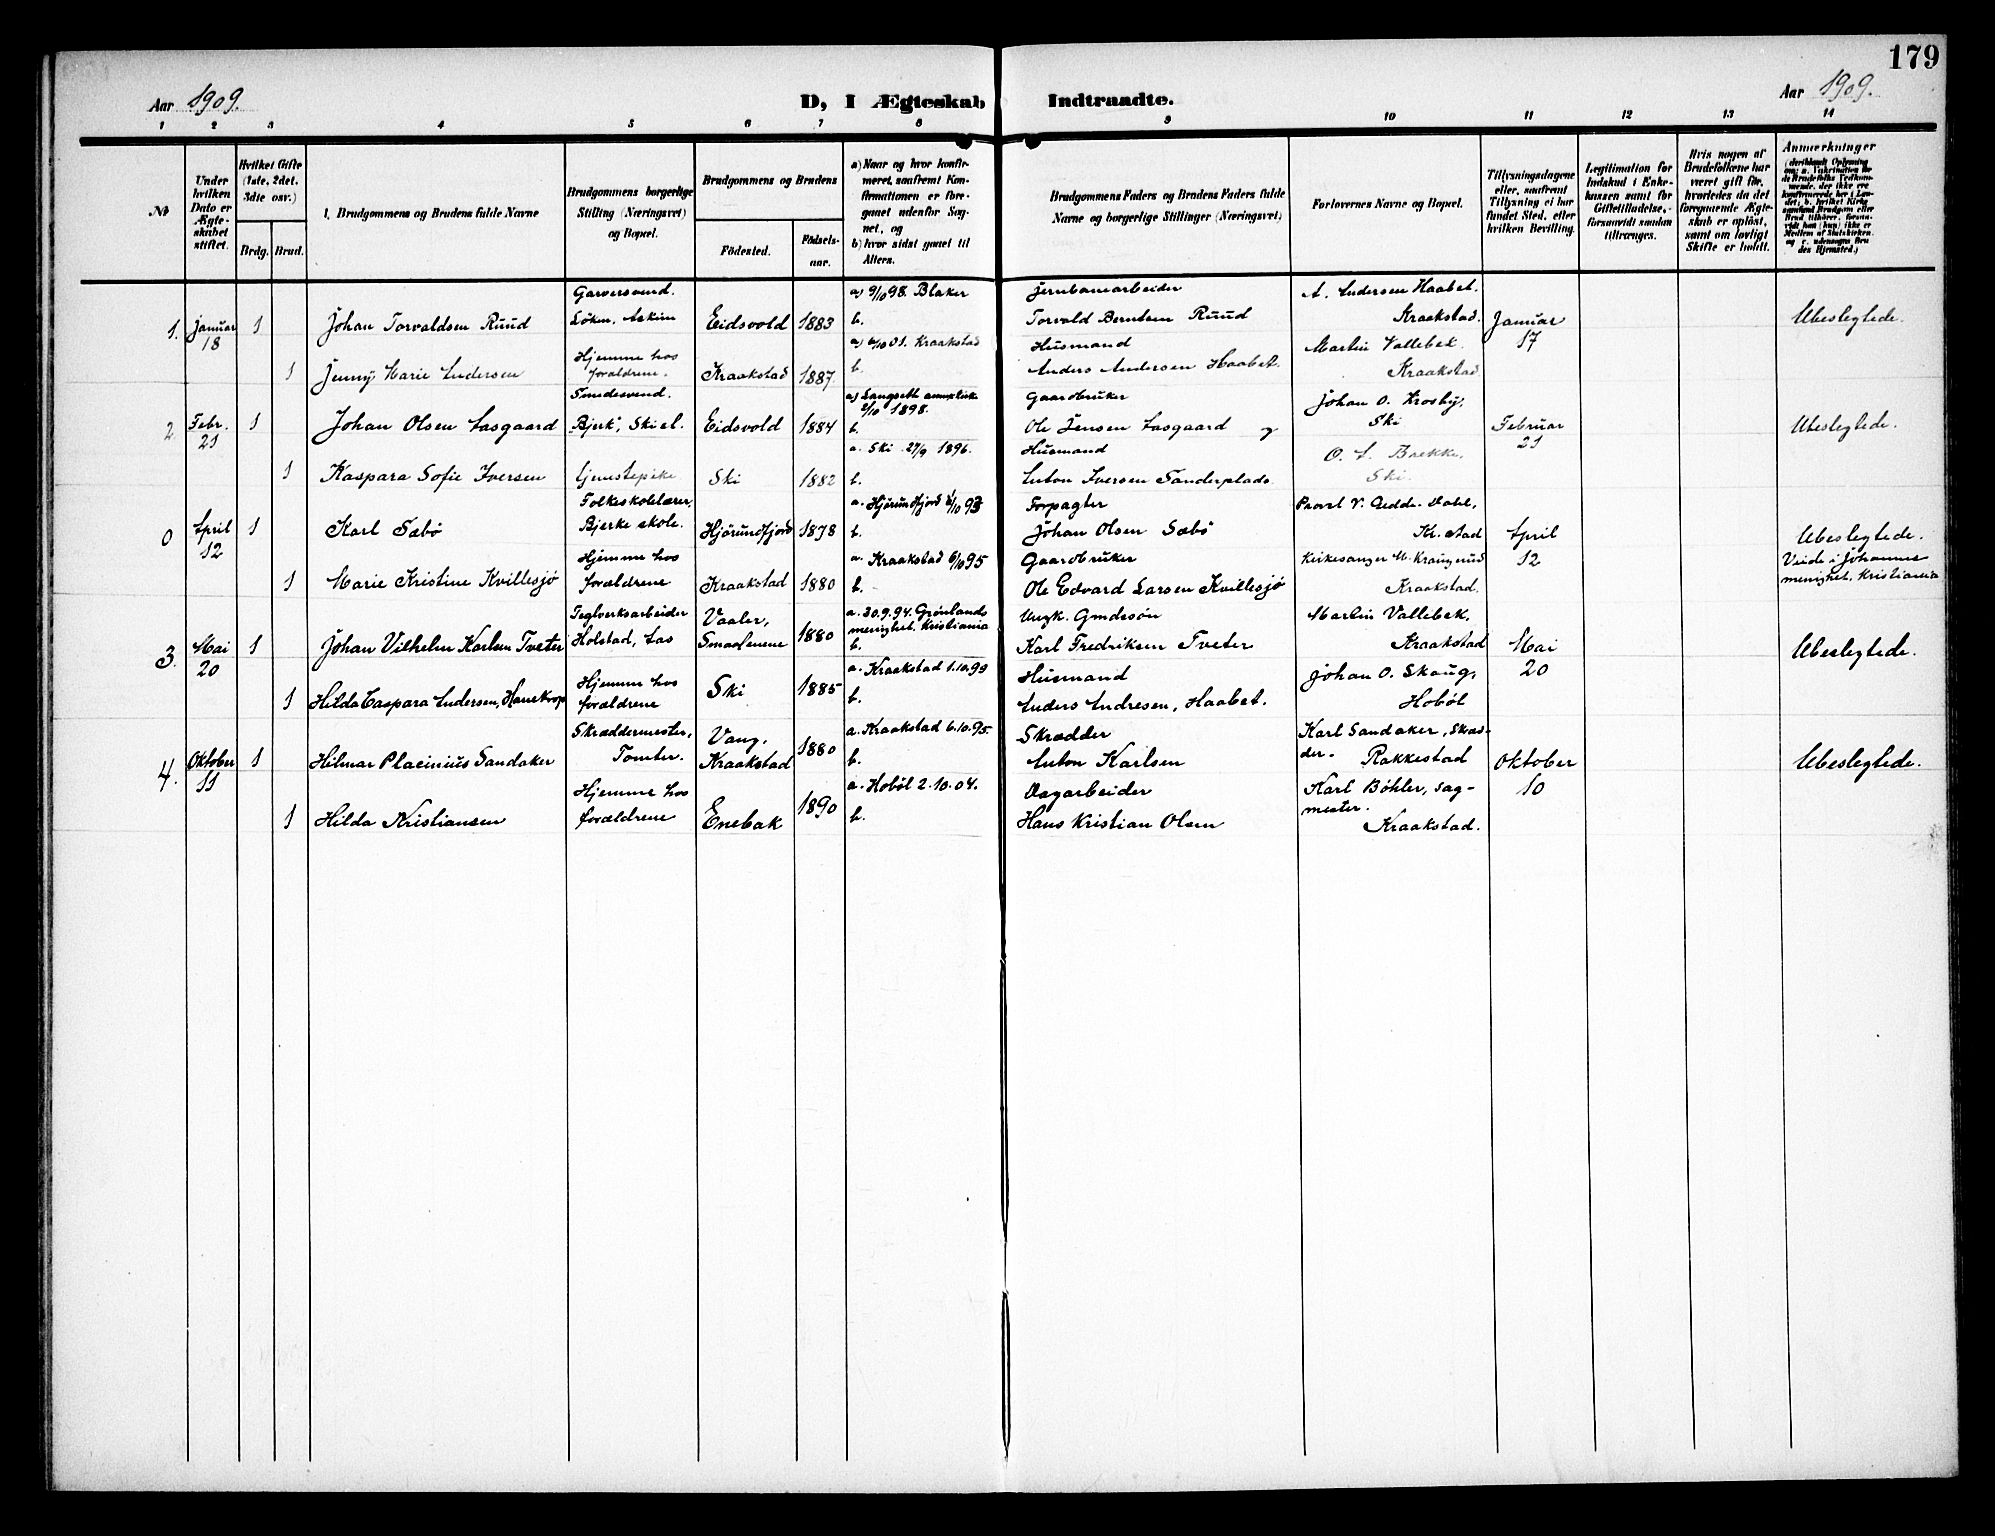 179
Aar 1909.
D, I Ægteskab Indtraadte.
Aar 1909.
1 2 3 4 5 6 7 8 9 10 11 12 13 14
№
Under hvilken Dato er Ægteskabet stiftet.
Hvilket Gifte (1ste, 2det, 3die osv.)
Brdg. Brud.
1. Brudgommens og Brudens fulde Navne
Brudgommens borgerlige Stilling (Næringsvei) og Bopæl.
Brudgommens og Brudens
Födested.
Födselsaar.
a) Naar og hvor konfirmeret, saafremt Konfirmationen er foregaaet udenfor Sognet, og
b) hvor sidst gaaet til Alters.
Brudgommens Faders og Brudens Faders fulde Navne og borgerlige Stillinger (Næringsvei)
Forlovernes Navne og Bopæl.
Tillysningsdagene eller, saafremt Tillysning ei har fundet Sted, efter hvilken Bevilling.
Legitimation for Indskud i Enkekassen samt for Giftetilladelse, forsaavidt saadan tiltrænges.
Hvis nogen af Brudefolkene har været gift før, hvorledes da det foregaaende Ægteskab er opløst, samt om lovligt Skifte er holdt.
Anmærkninger
Garversvend. a) 9/10 98. Blaker Jernbanearbeider A. Andersen Haabet.
1. Januar 18 1 Johan Torvaldsen Ruud Löken, Askim Eidsvold 1883 b. Torvald Berntsen Ruud Kraakstad. Januar 17 Ubeslegtede.
Hjemme hos a) 6/10 01. Kraakstad Husmand Martin Vallebek.
1 Jenny Marie Andersen forældrene. Kraakstad 1887 b. Anders Andersen Haabet. Kraakstad
Smedesvend. a) Langseth 2/10 1898. Gaardbruker Johan O. Krosby,
2 Febr. 21 1 Johan Olsen Aasgaard Bjerk, Ski st. Eidsvold 1884 b. Ole Jensen Aasgaard Ski Februar 21 Ubeslegtede.
a. Ski 27/9 1896. Husmand O. A. Bakke,
1 Kaspara Sofie Iversen tjenestepike Ski 1882 b. Anton Iversen Sanderplads. Ski.
Folkeskolelærer, a. Hjörundfjord 1/10 93 Forpagter Provst V. Gedde-Dahl,
0 April 12 1 Karl Sæbö Bjerke skole. Hjörundfjord 1878 b. Johan Olsen Sæbö Kr. stad April 12 Ubeslegtede.
Hjemme hos a. Kraakstad 6/10 95 Gaardbruker Kirkesanger Viede i Johannes
1 Marie Kristine Kvillesjö forældrene Kraakstad 1880 b. Ole Edvard Larsen Kvillesjö Kraakstad. menighet, Kristiania
Teglverksarbeider Vaaler, a. 30.9.94. Grönlands menighet. Kristiania Ungk. Gmdssön Martin Vallebek,
3. Mai 20 1 Johan Vilhelm Karlsen Tveter Holstad, Aas Smaalenene 1880 b. Karl Fredriksen Tveter Kraakstad Mai 20 Ubeslegtede.
Hjemme hos a. Kraakstad 1.10.99 Husmand Johan O. Skaug,
1 Hilda Caspara Andersen, Hanekrop forældrene Ski 1885 b. Anders Andresen, Haabet. Hoböl
Skræddermester, Vang, a. Kraakstad 6.10.95. Skrædder Karl Sandaker, Skræd-
4. Oktober 11 1 Hilmar Placinius Sandaker Tomter. Kraakstad 1880 b. Anton Karlsen der- Rakkestad Oktober 10 Ubeslegtede.
Hjemme hos a. Hoböl 2.10.04. Dagarbeider Karl Böhler, sag-
1 Hilda Kristiansen forældrene Enebak 1890 b. Hans Kristian Olsen mester. Kraakstad.